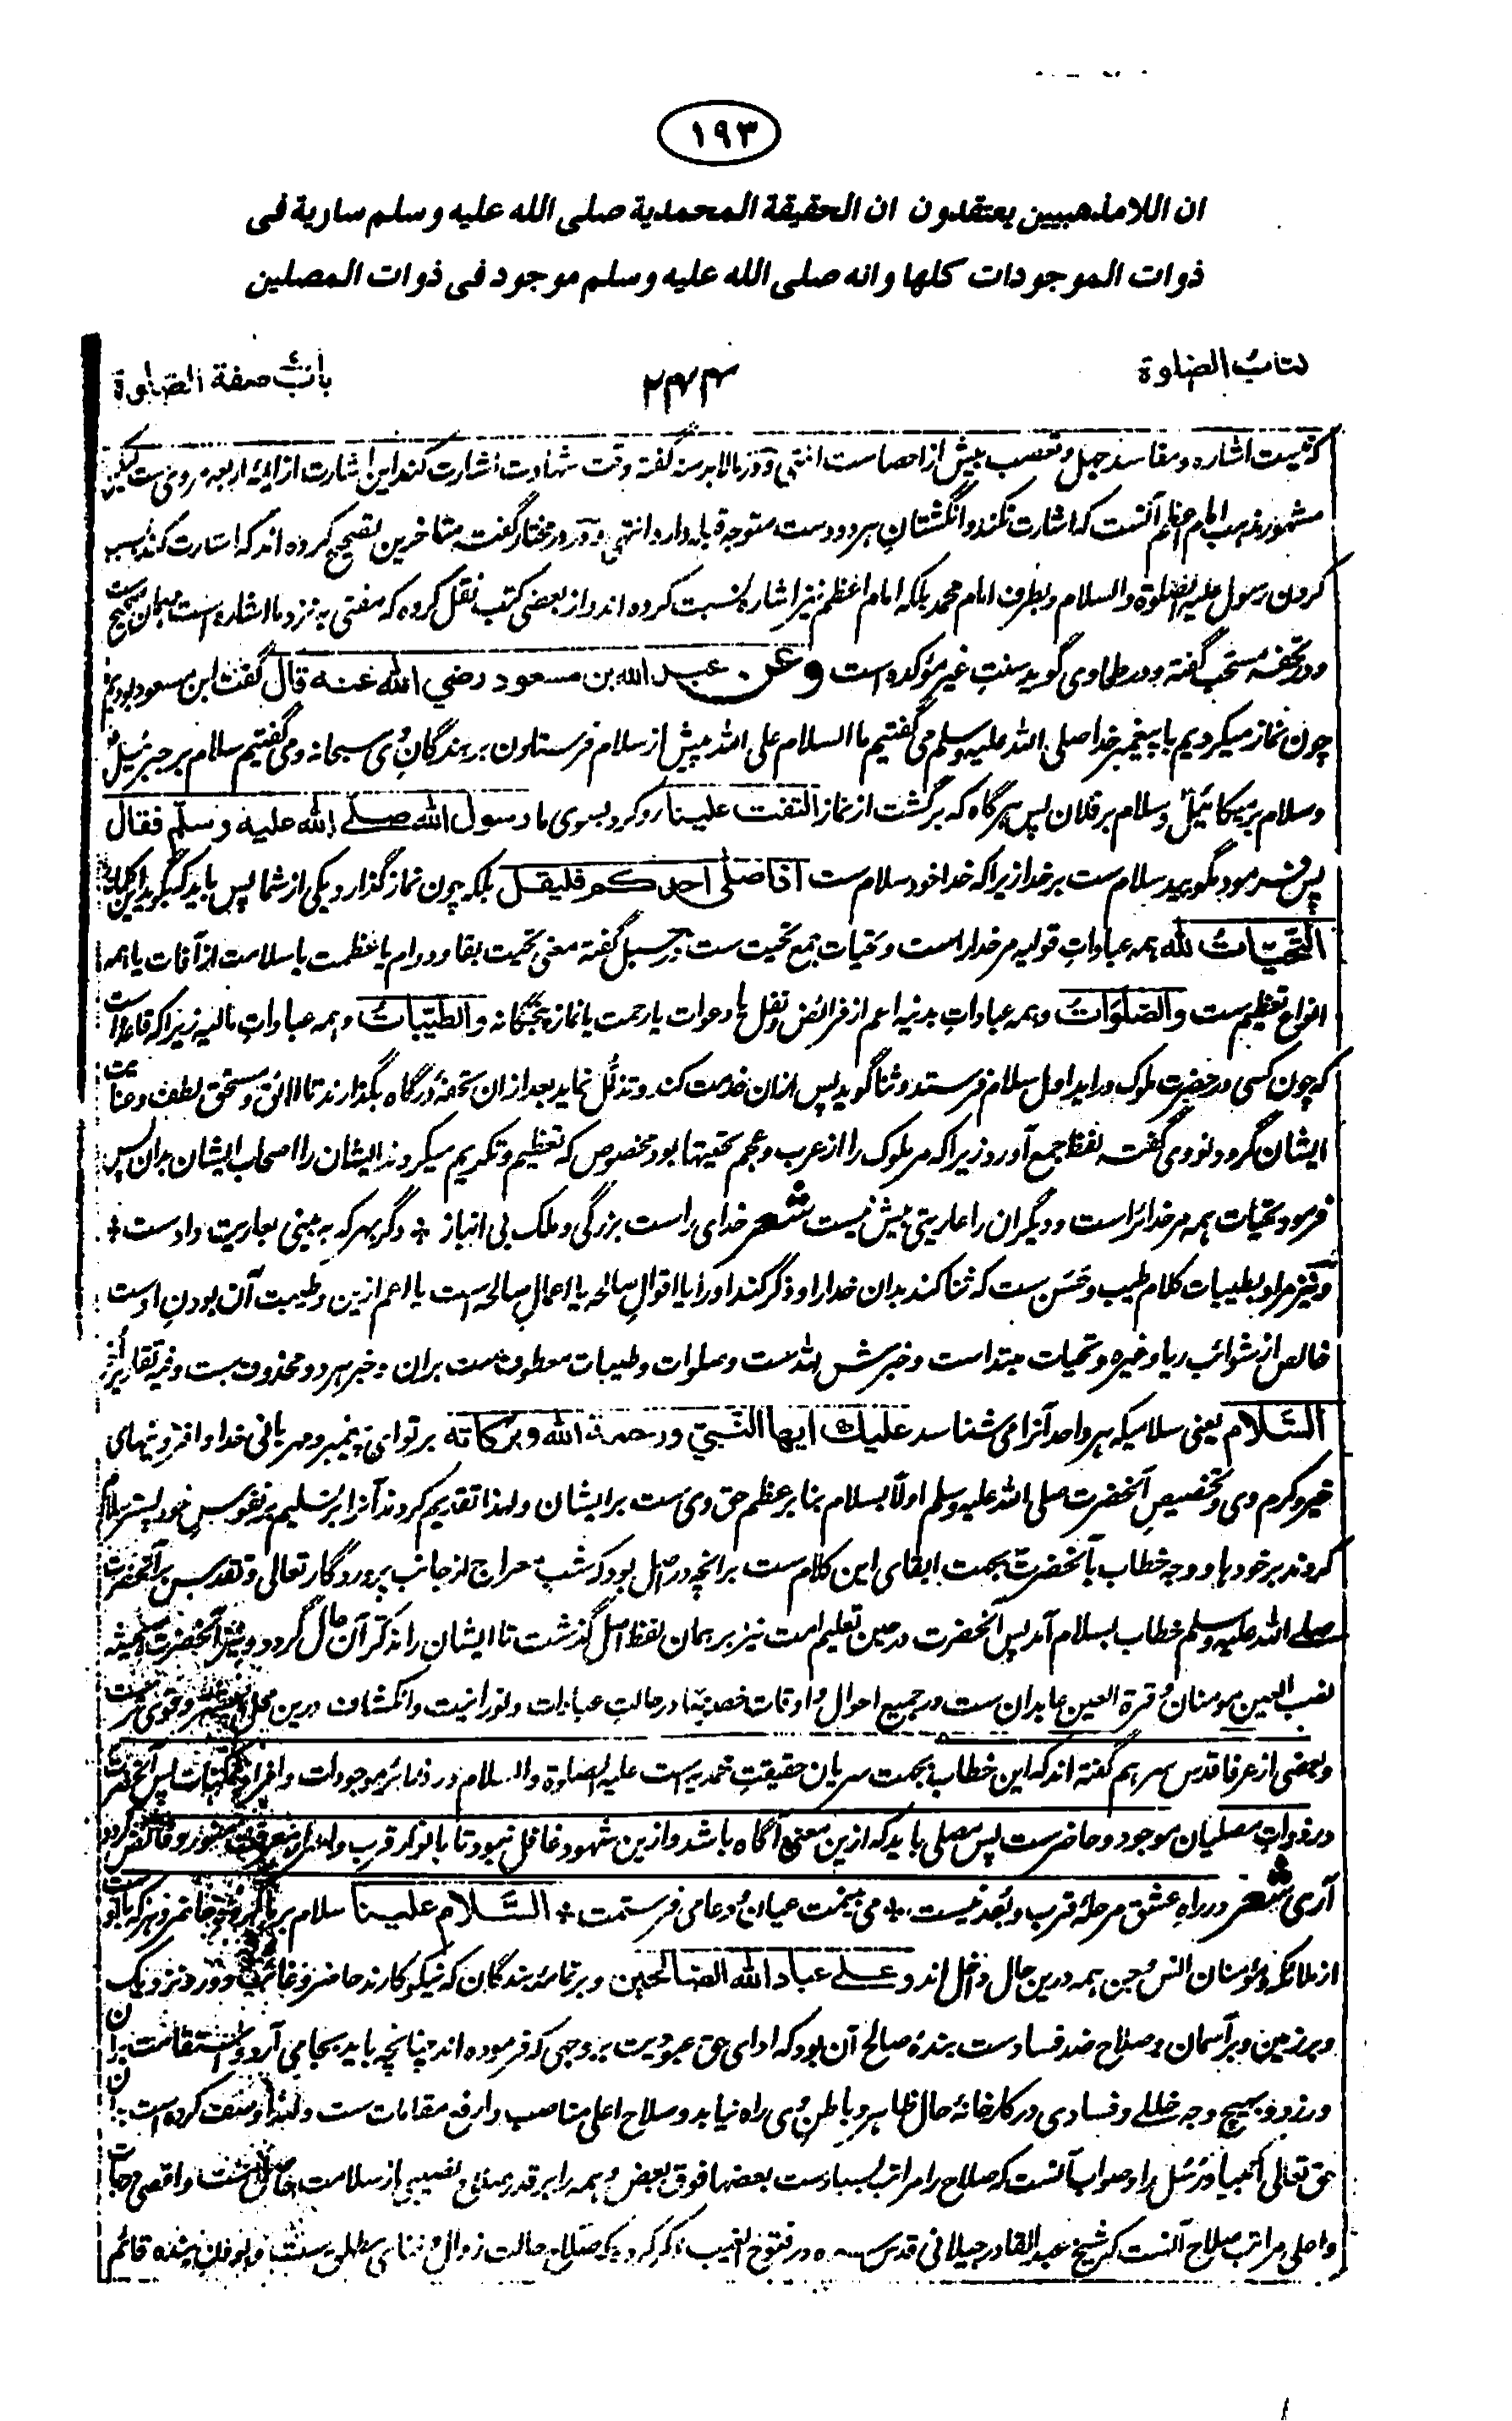 ١٩٣
ان اللامذهبيين يعتقدون ان الحقيقة المحمدية صلى الله عليه وسلم سارية فى
ذوات الموجودات كلها وانه صلى الله عليه وسلم موجود فى ذوات المصلين
كتاب الصلوة
٢٤٤
باب صفة الصلوة
کیفیت اشاره و مفاسد جهل و تعصب بیش از احصاست انتهی و در مالابد منه گفته وقت شهادت اشارت کند این اشارت از ایمه اربعه مروی ست لیکن
مشهور مذهب امام اعظم آنست که اشارت نکند و انگشتان هر دو دست متوجه قبله دارد انتهی و در در مختار گفت متاخرین تصحیح کرده اند که اشارت کند بسبب
کردن رسول علیه الصلوة والسلام و بطرف امام محمد بلکه امام اعظم نیز اشاره نسبت کرده اند و از بعضی کتب نقل کرده که مفتی به نزد ما اشاره است همان صحیح ست
و در تحفه مستحب گفته و در طحاوی گوید سنت غیر مؤکده است وعن عبد الله بن مسعود رضي الله عنه قال گفت ابن مسعود بودیم
چون نماز میکردیم با پیغمبر خدا صلی الله علیه وسلم می گفتیم ما السلام علی الله پیش از سلام فرستادن بر بندگان وی سبحانه و می گفتیم سلام بر جبرئیل
وسلام بر میکائیل وسلام بر فلان پس هر گاه که برگشت از نماز التفت علینا رو کرد بسوی ما رسول الله صلى الله عليه وسلم فقال
پس فرمود مگویید سلام ست بر خدا زیرا که خدا خود سلام ست اذا صلى احدكم فليقل بلکه چون نماز گذارد یکی از شما پس باید که بگوید این
التحيات لله همه عبادات قولیه مر خدا راست و تحیات جمع تحیت ست گفته معنی تحیت بقا و دوام یا عظمت یا سلامت از آفات یا همه
انواع تعظیم ست والصلوات و همه عبادات بدنیه اعم از فرائض و نفل یا دعوات یا رحمت یا نماز پنجگانه والطيبات و همه عبادات مالیه زیرا که قاعده است
که چون کسی در حضرت ملوک در اید اول سلام فرستد و ثنا گوید پس ازان خدمت کند و تذلل نماید بعد ازان تحفه درگاه بگذارند تا لائق و مستحق لطف و عنایت
ایشان گردد و نووی گفته لفظ جمع آورد زیرا که مر ملوک را از عرب و عجم تحیتها بود مخصوص که تعظیم و تکریم میکردند ایشان را اصحاب ایشان بدان پس
فرمود تحیات همه مر خدائراست و دیگران را عاریتی بیش نیست شعر خدای راست بزرگی و ملک بی انباز * دگر بهر که به بینی بعاریت دادست *
و نیز مراد بطیبات کلام طیب و حسن ست که ثنا کند بدان خدا را و ذکر کند او را یا اقوال صالحه یا اعمال صالحه است یا اعم ازین و طیبت آن بودن اوست
خالص از شوائب ریا و غیره و تحیات مبتداست و خبرش لله ست و صلوات و طیبات معطوف ست بران و خبر هر دو محذوف ست
السلام یعنی سلامیکه هر واحد آنرا می شناسد عليك ايها النبي ورحمة الله وبركاته بر تو ای پیغمبر و مهربانی خدا و افزونیهای
خیر و کرم وی و تخصیص آنحضرت صلی الله علیه وسلم اولا بسلام بنابر عظم حق وی ست بر ایشان و لهذا تقدیم کردند آنرا بر تسلیم بر نفوس خود پستر سلام
کردند بر خودها و وجه خطاب بآنحضرت بجهت ابقای این کلام ست بر انچه در اصل بود که شب معراج از جانب پروردگار تعالی و تقدس بر آنحضرت
صلی الله علیه وسلم خطاب بسلام آمد پس آنحضرت در حین تعلیم امت نیز بر همان لفظ اصل گذشت تا ایشان را تذکر آن حال گردد و نیز آنحضرت همیشه
نصب العین مومنان و قرة العین عابدان ست در جمیع احوال و اوقات خصوصا در حالت عبادات و نورانیت و انکشاف درین محل بیشتر و قوی تر ست
و بعضی از عرفا قدس سرهم گفته اند که این خطاب بجهت سریان حقیقت محمدیه است علیه الصلوة والسلام در ذرائر موجودات و افراد ممکنات پس آنحضرت
در ذوات مصلیان موجود و حاضرست پس مصلی باید که ازین معنی آگاه باشد و ازین شهود غافل نبود تا بانوار قرب و اسرار معرفت متنور و فائض گردد
آری شعر در راه عشق مرحلهٔ قرب و بعد نیست * می بینمت عیان و دعا می فرستمت * السلام علينا سلام بر ما
از ملائکه و مومنان انس و جن همه درین حال داخل اند وعلى عباد الله الصالحين و بر تمامه بندگان که نیکوکارند حاضر و غائب و دور و نزدیک
و بر زمین و بر آسمان و صلاح ضد فسادست بندهٔ صالح آن بود که ادای حق عبودیت بروجهی که فرموده اند چنانچه باید بجا می آرد و استقامت بران
ورزد و بهیچ وجه خللی و فسادی در کارخانهٔ حال ظاهر و باطن وی راه نیابد و صلاح اعلی مناصب و ارفع مقامات ست و لهذا وصف کرده است بدان
حق تعالی انبیا و رسل را و صواب آنست که صلاح را مراتب بسیارست بعضها فوق بعض و همه را بر قدر صلاح نصیبی از سلامت حاصل ست و اقصی درجات
و اعلی مراتب صلاح آنست که شیخ عبد القادر جیلانی قدس سره در فتوح الغیب ذکر کرده که صلاح حالت زوال و فنای مطلق ست و بودن بنده قائم